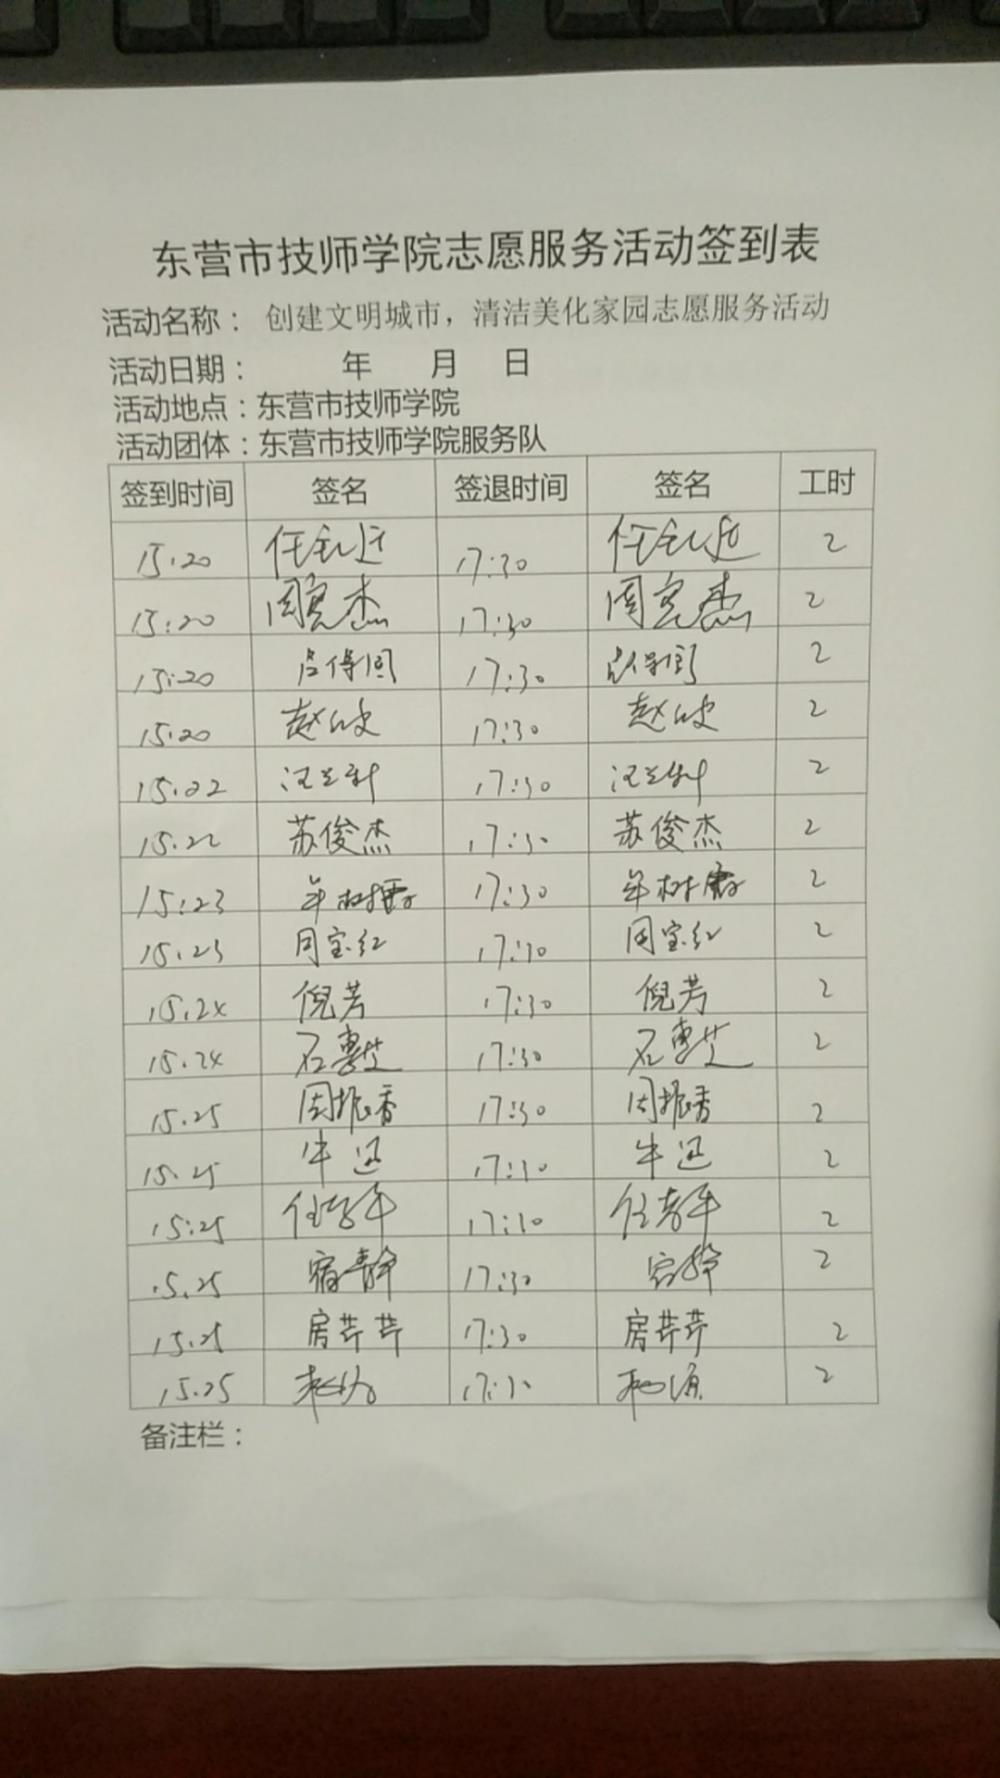 东营市技师学院志愿服务活动签到表
活动名称： 创建文明城市，清洁美化家园志愿服务活动
活动日期： 年 月 日
活动地点：东营市技师学院
活动团体：东营市技师学院服务队
签到时间 签名 签退时间 签名 工时
15:20 17:30 2
15:20 周完杰 17:30 周完杰 2
15:20 17:30 2
15:20 赵 17:30 赵 2
15:22 汪 17:30 汪 2
15:22 苏俊杰 17:30 苏俊杰 2
15:23 牟树霞 17:30 牟树霞 2
15:23 周宝红 17:30 周宝红 2
15:24 倪芳 17:30 倪芳 2
15:24 石惠芝 17:30 石惠芝 2
15:25 周振香 17:30 周振香 2
15:25 牛迅 17:30 牛迅 2
15:25 任 17:30 任 2
15:25 宿静 17:30 宿静 2
15:25 房芹芹 17:30 房芹芹 2
15:25 17:30 2
备注栏：